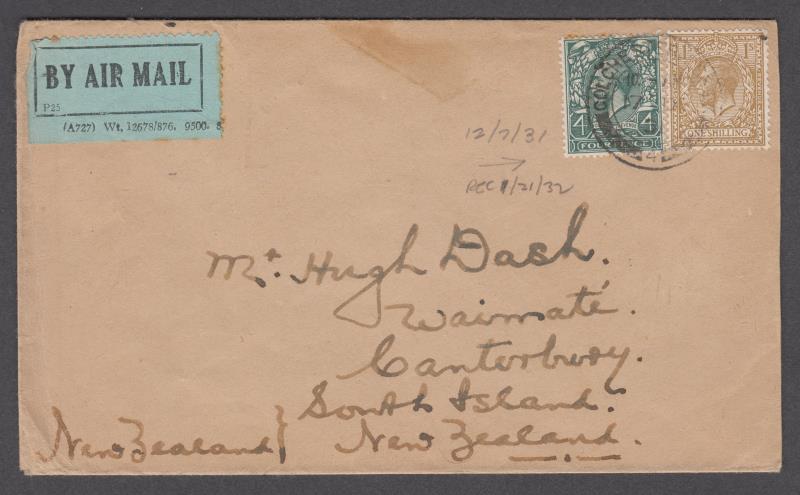 BY AIR MAIL
P25
(A727) Wt. 12678/876. 9500.
4 4
FOURPENCE
1S 1S
ONE SHILLING
12/7/31
REC 1/21/32
Mr. Hugh Dash.
Waimaté.
Canterbury.
South Island.
New Zealand } New Zealand.